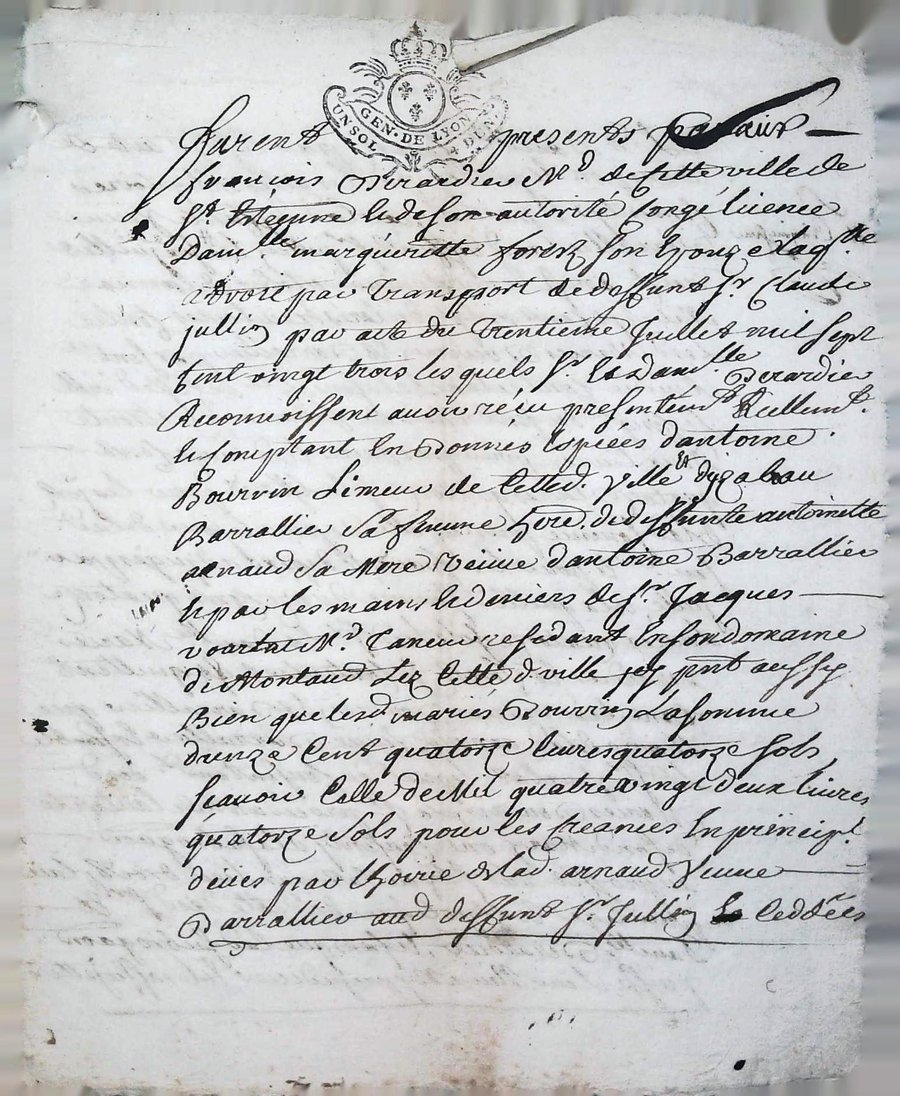 GEN. DE LYON
UN SOL 4 DEN.
furent presents
françois Berardier Md. de Cette ville de
St. Etienne & de Son autorité Congé licence
Damlle. marguéritte forest Son Epouze Laqlle
advoit par Transport de deffunt Sr. Claude
jullin par acte du Trentieme Juillet mil Sept
Cent vingt trois lesquels Sr. & Damlle Berardier
Reconnoissent avoir récu présentemt. & Réellemt.
& Comptant En Bonnes Espiéces dantoine
Bourrin Limeur de Cette d. ville Et dyzabeau
Barrallier Sa femme Here. de deffunte antoinette
arnaud Sa Mere veüve dantoine Barrallier
& par les mains & deniers de Sr. Jacques
Md. Taneur residant En son domaine
de Montaud Lez Cette d. ville jcy pnt aussy
Bien que lesd. mariés Bourrin La Somme
dunze Cent quatorze livres quatorze Sols
scavoir Celle de Mil quatre vingt deux livres
quatorze Sols pour les Creances En principl.
deües par Lhoirie de Lad. arnaud Veuve
Barrallier aud deffunt Sr. Jullin Ceddées